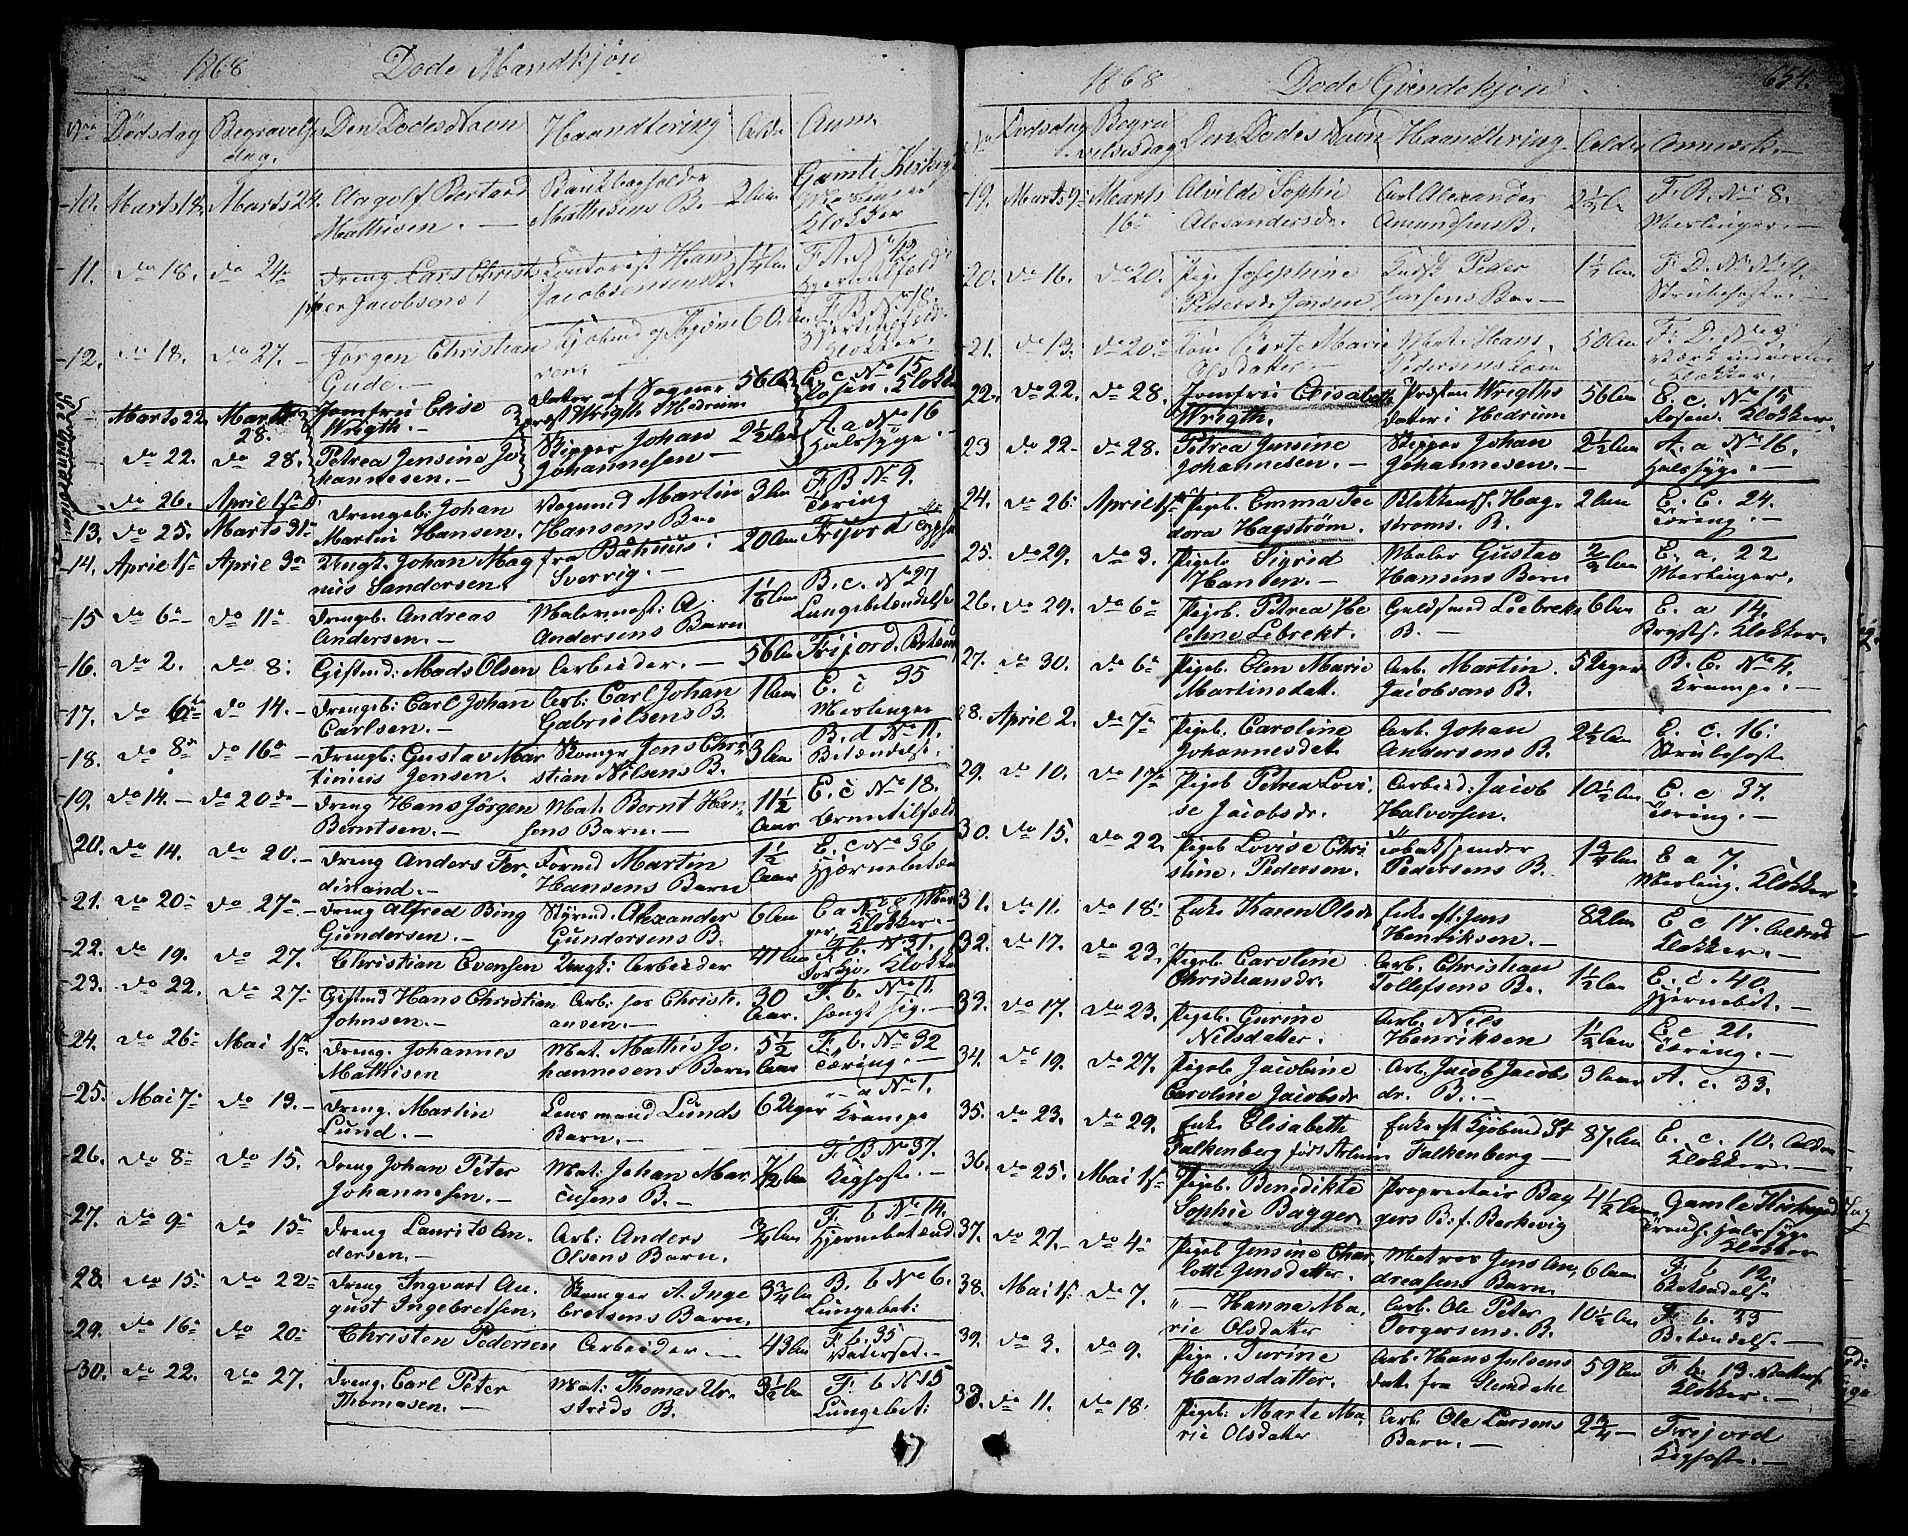 1868 Døde Mandkjøn
Nro Dødsdag Begravelses dag. Den Dødes Navn Haandtering Alder Anm.
10. Marts 18. Marts 24. Mathisen. — Mathisens B. — 2 Aar Gamle Klokker
11. do 18. do 24. Dreng Lars Christ Jacobsens Contorist Hans Jacobsens B. 1 1/4 Aar F. A. No 12
12. do 18. do 27. — Jørgen Christian Gude. — Kjøbmd og 60 Aar F. B. No 18. Klokker.
Marts 22 Marts 28. Jomfru Elise Wrigth. — Datter af Sogne prest Wrigth Hedrum 56 Aar E. c. No 15 Rosen. Klokker
do 22. do 28. Petrea Jensine Johannesen. — Skipper Johan Johannesen — 2 1/2 Aar A. a No 16 Halssyge. —
do 26. April 1ste
13. do 25. Marts 31. Drengeb: Johan Martin Hansen. Vognmd Martin Hansens Bar 3 Aar F B No 9. Tæring
14. April 1ste April 3. Ungk. Johan Magnus Sandersen. fra Sverrig. — 20 Aar Frijord
15 do 6 — do 11 Drengeb. Andreas Andersen. — Malermest: A. Andersens Barn 1 1/6 Aar B. c. No 27 Lungebetændelse
16. do 2. do 8: Giftmd: Mads Olsen Arbeider. — 56 Aar Frijord.
17. do 6 do 14. — Drengeb: Carl Johan Carlsen. — Arb: Carl Johan Gabrielsens B. 1 Aar E. c 35 Meslinger
18. do 8 do 16 — Drengb: Gustav Martinius Jensen. Skomgr Jens Christian Nilsens B. 3 Aar B. d No 11. Betændelse.
19. do 14. — do 20 Dreng Hans Jørgen Berntsen. — Mat. Bernt Hansens Barn. — 11 1/2 Aar E. c No 18.
20. do 14. do 20. — Dreng Anders Ferdinand. — Formd Martin Hansens Barn 1 1/2 Aar E. c No 36 Hjærnebetæn
21. do 20 do 27 Dreng Alfred Bing Gundersen. — Styrmd. Alexander Gundersens B. 6 Aar E a No 28 Klokker. —
22. do 19. do 27. Christian Evensen Ungk: Arbeider 41 Aar F. b. No 31. Klokker
23. do 22. do 27 Giftmd Hans Christian Johnsen. — Arb: Christiansen. — 30 Aar. F. b. No 11.
24. do 26 Mai 1ste Dreng. Johannes Mathisen Mat. Mathis Johannesens Barn 5 1/2 Aar F. b. No 32 Tæring. —
25. Mai 7 do 13. — Dreng. Martin Lund. — Lensmand Lunds Barn. — 6 Uger a No 1. Krampe
26. do 8 do 15. Dreng Johan Peter Johannesen. — Mat: Johan Marcusens B. — 7/12 Aar F B No 37. Kighoste. —
27. do 9 do 15 Dreng Laurits Andersen. — Arb: Anders Olsens Barn. 3/4 Aar F. b No 14. Hjernebetænd
28. do 15 do 22 Dreng Ingvart August Ingebretsen. Skomger A. Ingebretsens Barn. 3 3/4 Aar B. b No 6. Lungebet:
29. do 16 do 20 Christen Pedersen Arbeider — 43 Aar F. b. 35 Vatersot. —
30. do 22. do 27. Dreng. Carl Peter Thomasen. — Mat: Thomas Urstrøds B. 3 1/2 Aar F: b No 15 Lungebet:
1868 Døde Qvindekjøn 654.
No Dødsdag Begravelsesdag Den Dødes Navn Haandtering Alder Anmerk. —
19. Marts 9 Marts 16 Alvilde Sophie Alexandersdr. Arb. Alexander Amundsens B. 2 1/2 Aar F. B. No 8. Meslinger. —
20. do 16. do 20. Pige Josephine Pedersdr Jensen Peder Jensens Bar — 1 1/2 Aar F. D. No 4. Strubehoste. —
21. do 13. do 20 Kone Berte Marie Olsdatter. — Mat. Hans Pedersens Kone 50 Aar F. D. No 3. Klokker.
22. do 22. do 28. Jomfru Elisabeth Wrigth. Præsten Wrigths datter i Hedrum 56 Aar E. c. No 15 Rosen. Klokker.
23 do 22. do 28. Petrea Jensine Johannesen. — Skipper Johan Johannesen. — 2 1/2 Aar A. a No 16. Halssyge. —
24. do 26. April 1ste Pigeb. Emma Teodora Hagstrøm. Blikkensl. Hagstroms. B. 2 Aar E. C. 24. Tæring. —
25. do 29. do 3. Pigeb. Sigrid Hansen. — Maler Gustav Hansens Barn 2/3 Aar E. a. 22 Meslinger.
26. do 29. do 6 Pigeb. Petrea Helene Lebrekt. Guldsmed Liebrekts B. — 6 Aar E. a 14. Brysts. Klokker.
27. do 30. do 6 Pigeb. Elen Marie Martinsdatt. Arb. Martin Jacobsens B. 5 Uger B. C. No 4. Krampe. —
28. April 2. do 7 Pigeb. Caroline Johannesdat. Arb. Johan Andersens B. 2 1/2 Aar E. c. 16. Strubehoste
29. do 10. do 17 Pigeb Petrea Lovise Jacobsdr. Arbeid: Jacob Halvorsen. 10 1/2 Aar E. c 37. Tæring. —
30. do 15. do 22. Pigeb Lovise Christine. Pedersen. Tobakspinder Pedersens B. 1 3/4 Aar E a 7. Mesling. Klokker
31. do 11. do 18 Enke Karen Olsdr Enke eft: Jens Henriksen. — 82 Aar E c 17. Alderd Klokker. —
32. do 17. do 23. Pigeb. Caroline Christiansdr. Arb. Christian Tollefsens B. 1 1/2 Aar E. c. 40 Hjernebet. —
33. do 17. do 23. Pigeb. Gurine Nilsdatter. Arb. Nils Henriksen 1 1/2 Aar E c 21. Tæring. —
34. do 19. do 27. Pigeb Jacobine Caroline Jacobsdr Arb. Jacob Jacobsdr. B. — 3 Aar A. c. 33.
35. do 23. do 29. Enke Elisabeth Falkenberg født Enke eft Kjøbmd St Falkenberg — 87 Aar E. c. 10. Klokker. —
36. do 25. Mai 1ste Pigeb. Benedikte Sophie Bagger. Proprietair Baggers B: f. Berkevig 4 1/2 Aar Gamle Kirkegd Halssyge Klokker
37. do 27. — do 4 Pigeb Jensine Charlotte Jensdatter. Matros Jens Andreasens Barn. 6 Aar F. b 12. Betændelse
38. Mai 1ste do 7. " — Hanna Marie Olsdatter Arb. Ole Peter Torgersens. B. 10 1/2 Aar F. b. 23 Betændelse. —
39. do 3. do 9. Pige. Turine Hansdatter. Arb. Hans Julsens dat. fra 59 Aar F. b. 13 Klokker. —
33. do 11. do 18. Pigeb: Marte Marie Olsdatter Arb. Ole Larsens Barn. — 2 3/4 — Frijord Kighoste. —